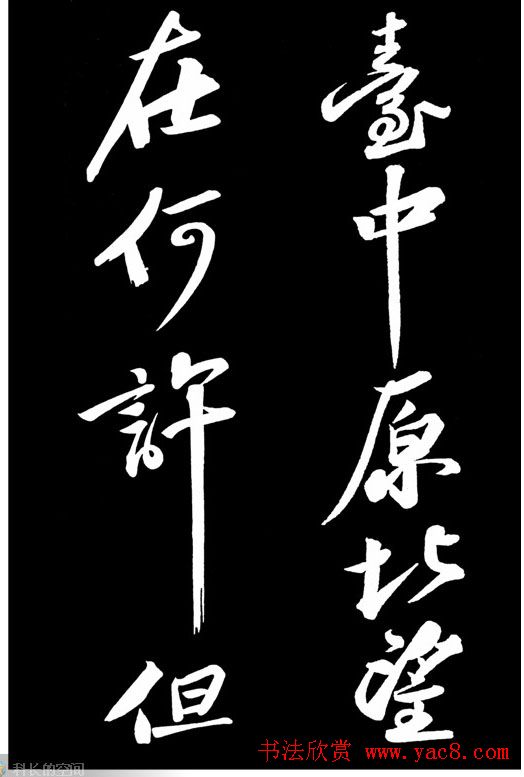 臺中原北望
在何許但
书法欣赏 www.yac8.com
科长的空间